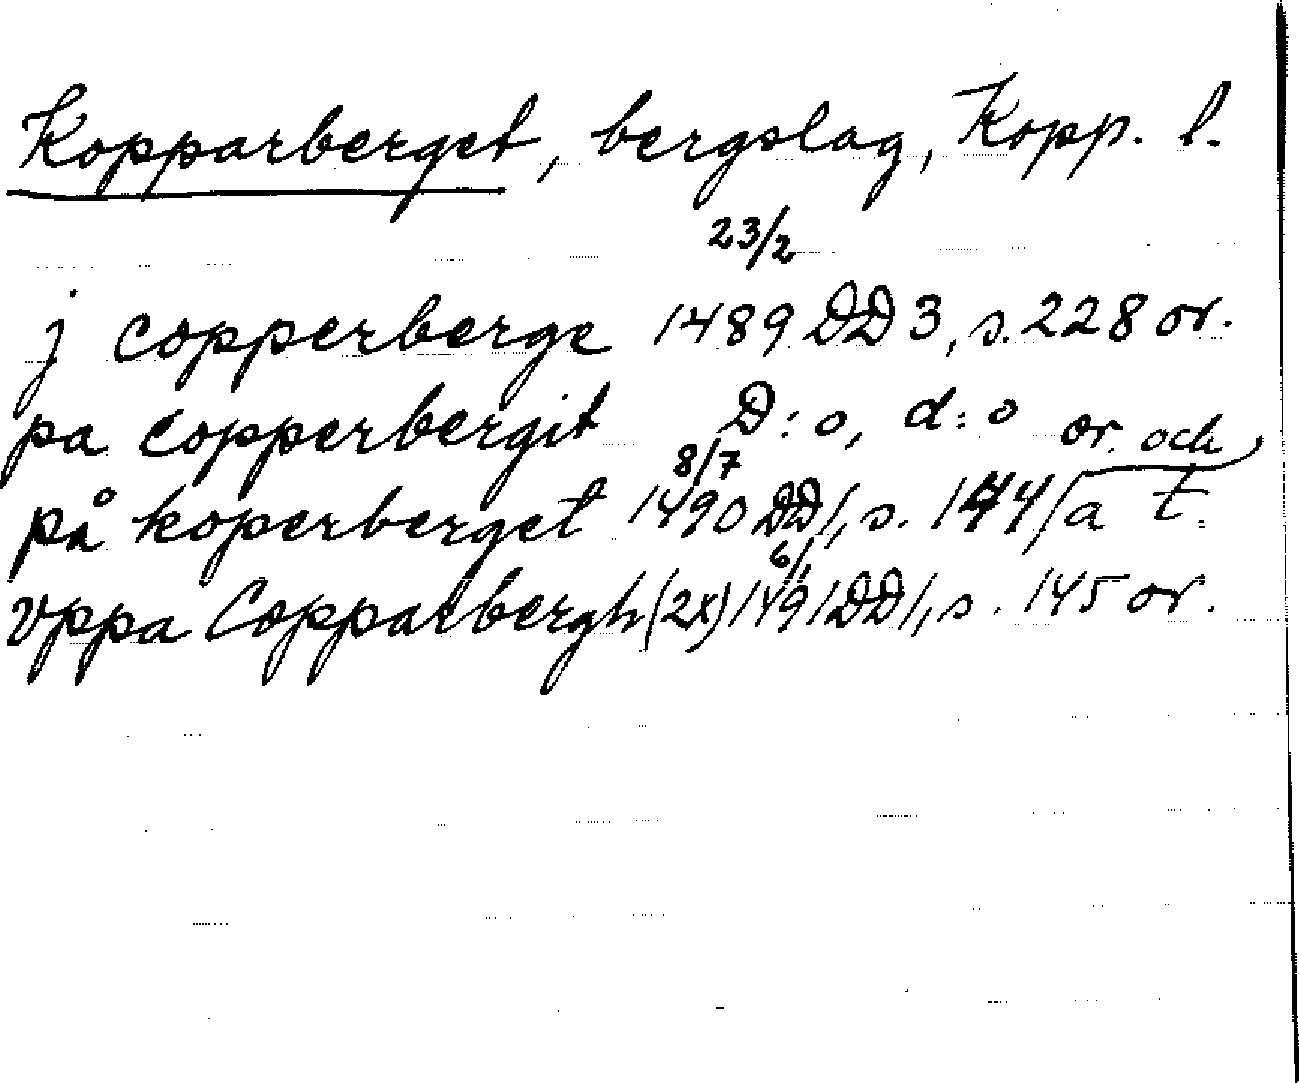 Kopparberget, bergslag, Kopp. l.
23/2
j copperberge 1489 DD 3, s. 228 or.
pa copperbergit D:o, d:o or. och
8/7
på koperberget 1490 DD 1, s. 144/a t.
6/1
vppa Copparbergh (2x) 1491 DD 1, s. 145 or.